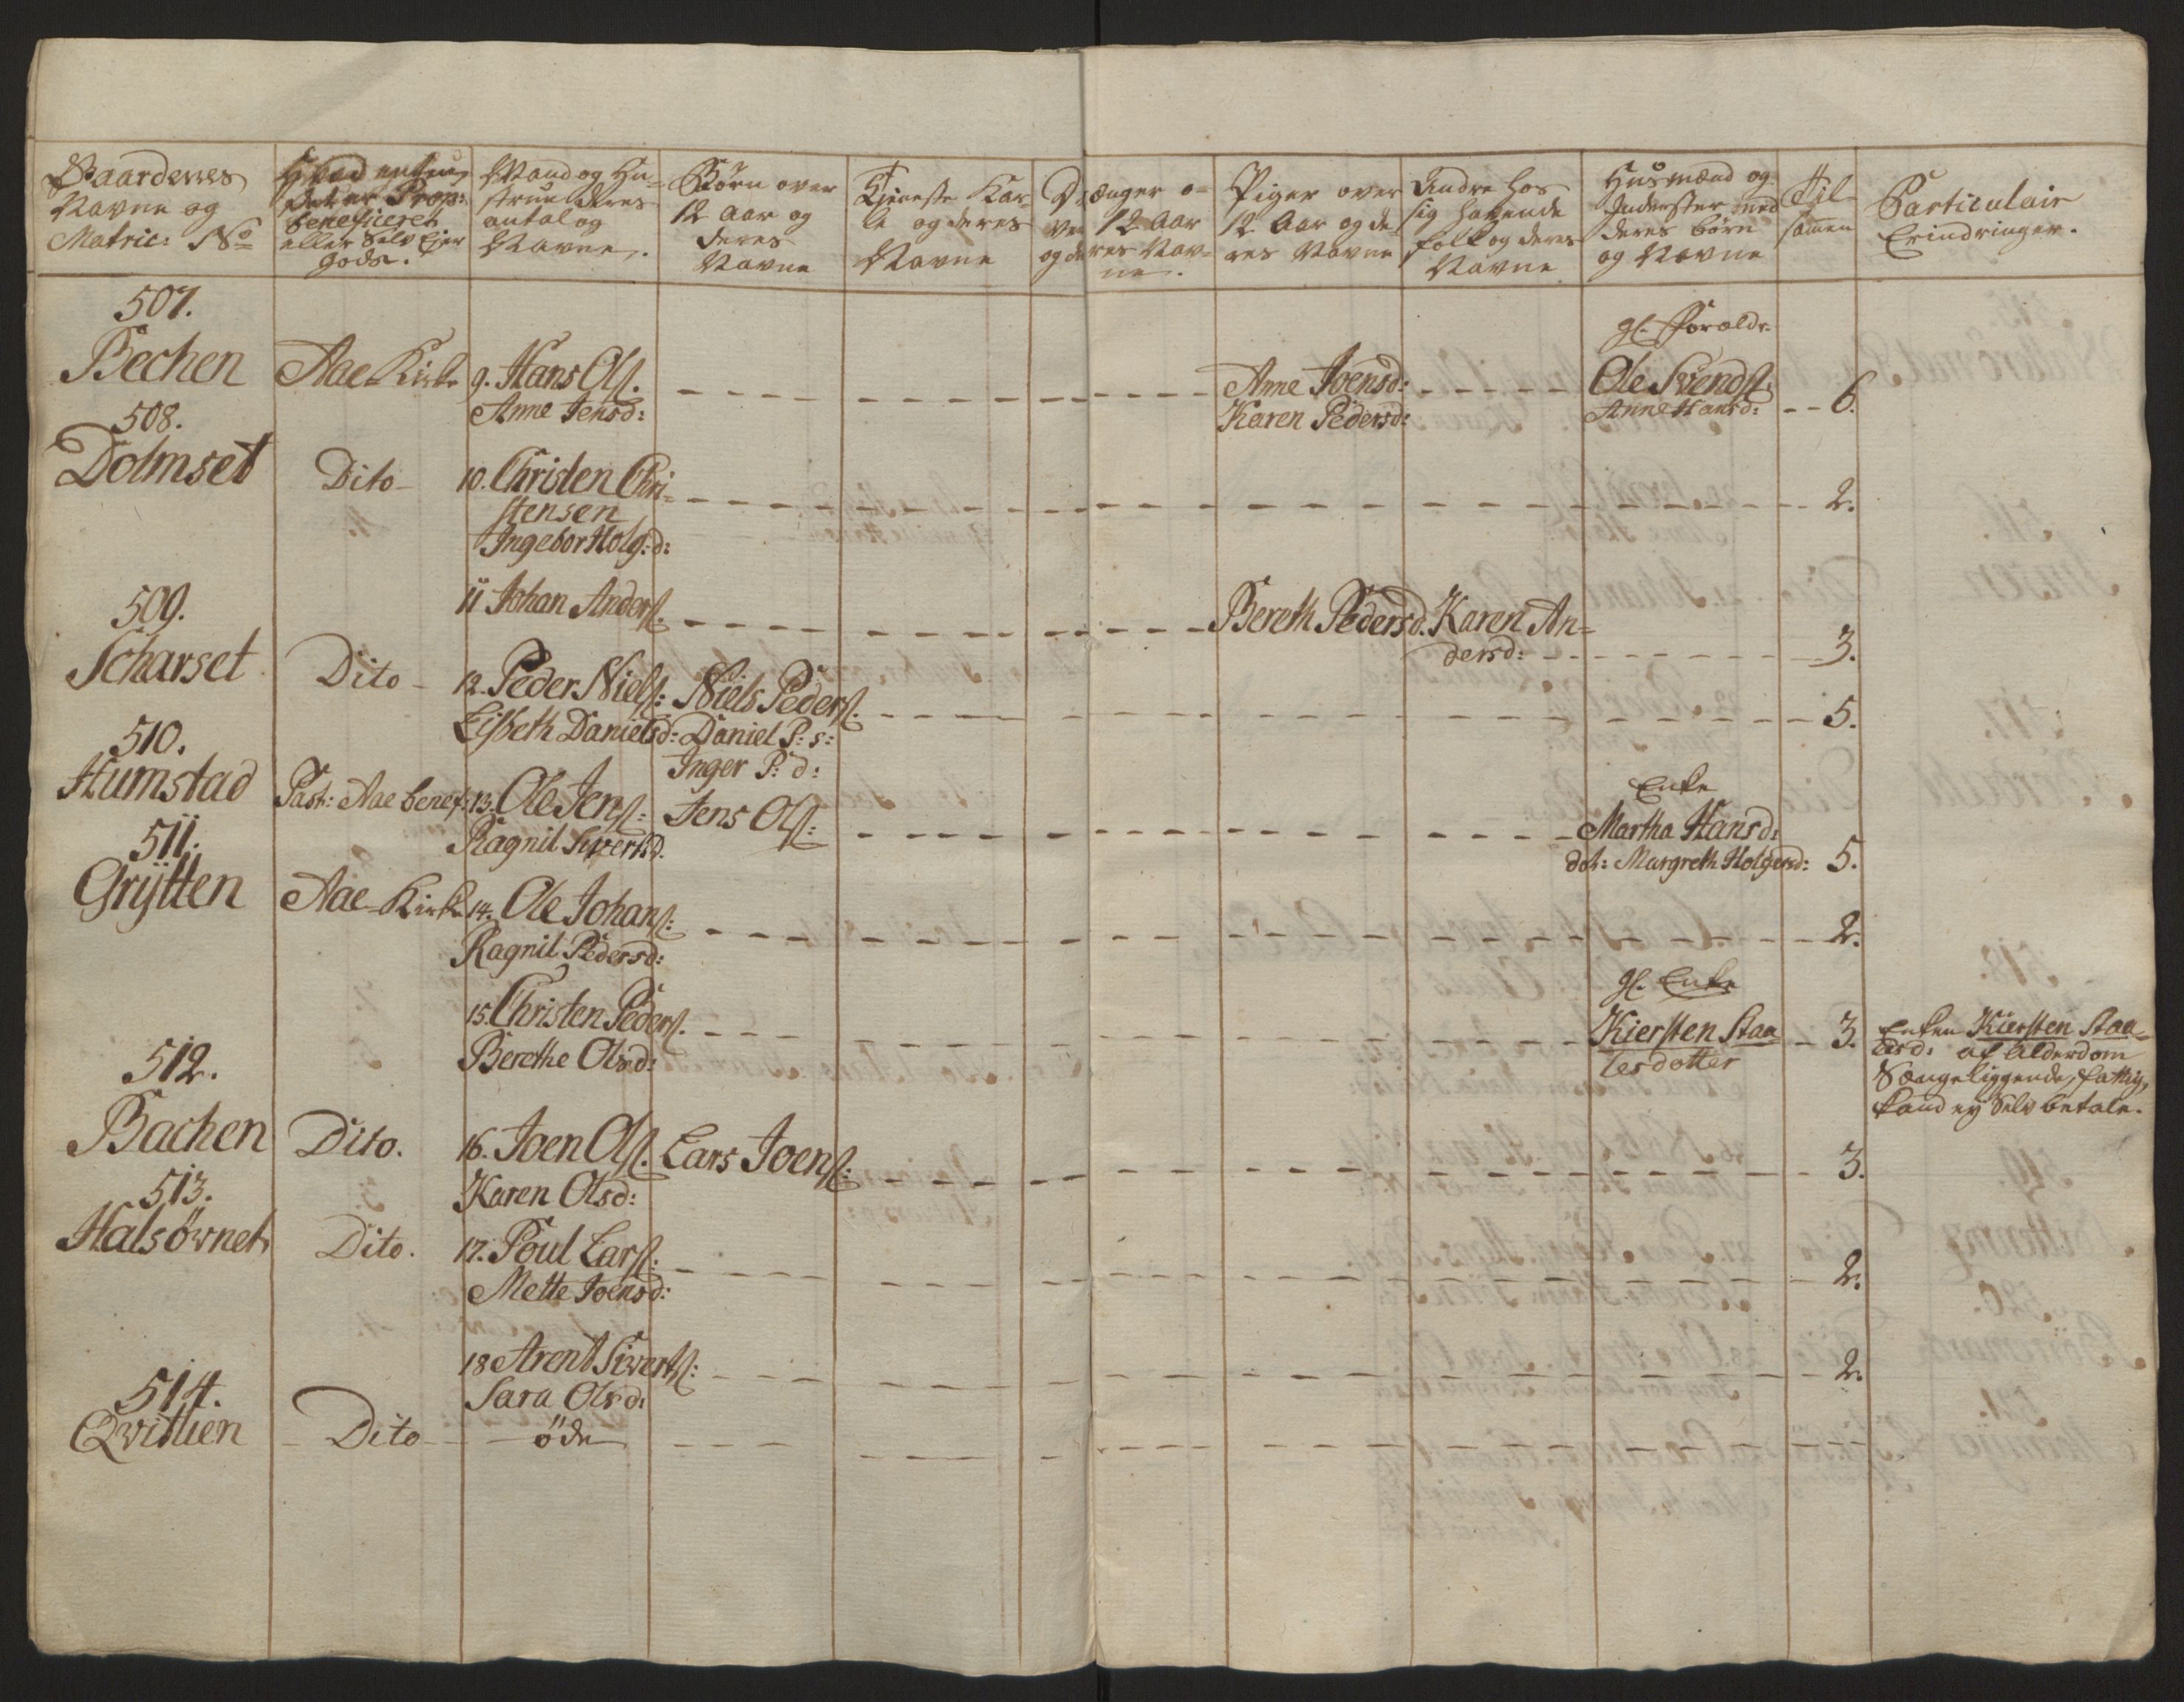 Gaardenes
Navne og
Matric: No
Hvad enten
det er Prop:
beneficeret
eller Selv Ejer
gods.
Mand og Hu-
strue deres
antal og
Navne.
Børn over
12 Aar og
deres
Navne
Tjeneste Kar-
le og deres
Navne
Drænger o-
ver 12 Aar
og deres Nav-
ne.
Piger over
12 Aar og de-
res Navne
Andre hos
sig havende
folk og deres
Navne
Husmænd og
Inderster med
deres børn
og Navne
Til
sammen
Particulair
Erindringer.
507.
Bechen
Aae Kirke
9. Hans Ols.
Anne Jensd:
Anne Joensd:
Karen Pedersd:
gl. Forældr.
Ole Svends.
Anne Hansd:
6.
508.
Dolmset
Dito
10. Christen Chri-
stensen
Ingebor Holg:d:
2.
509.
Scharset
11 Johan Anders.
Bereth Pedersd.
Karen An-
dersd:
3.
Dito
12. Peder Niels:
Lisbeth Danielsd:
Niels Peders.
Daniel P: s:
Inger P: d:
5.
510.
Humstad
Past: Aae benef:
13. Ole Jens:
Ragnil Siversd.
Jens Ols:
Enke
Martha Hansd:
dot: Margreth Holgersd:
5.
511.
Grÿtten
Aae Kirke
14. Ole Johans:
Ragnil Pedersd:
2.
15. Christen Peders.
Berethe Olsd:
gl. Enke
Kiersten Staa-
lesdotter
3.
Enken Kiersten Staa-
lesd: af Alderdom
Sængeliggende, fattig,
kand ey Selv betale.
512.
Bachen
Dito.
16. Joen Ols.
Karen Olsd:
Lars Joens:
3.
513.
Halsøvnet
Dito.
17. Poul Lars:
Mette Joensd:
2.
18 Arent Siverts:
Sara Olsd:
2.
514.
Qvitlien
Dito
öde